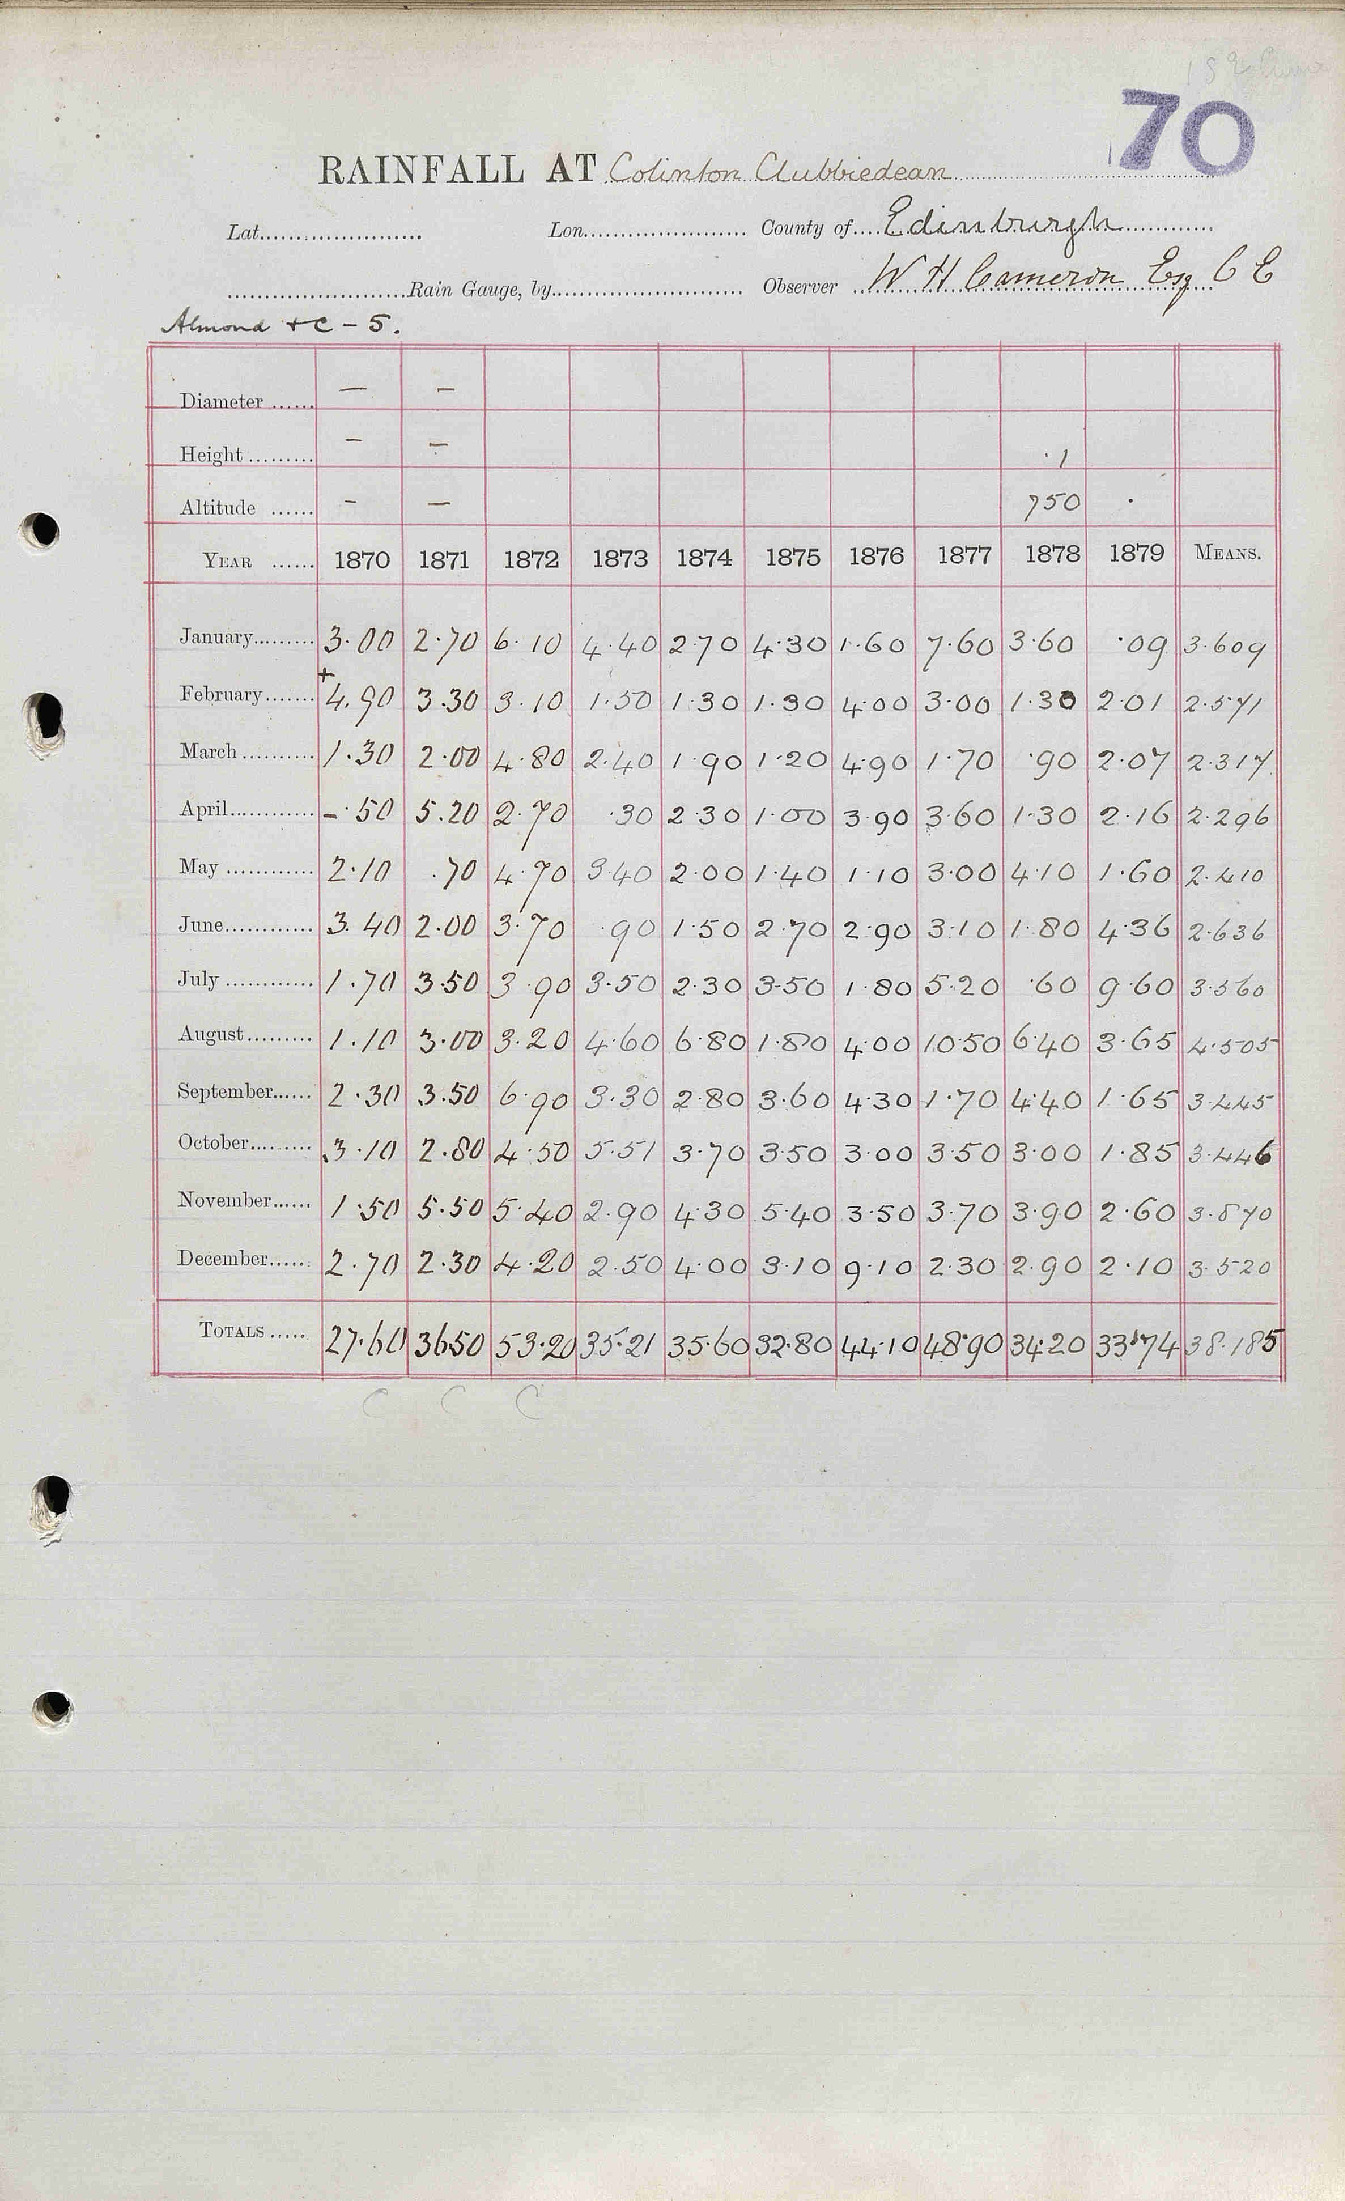 70
RAINFALL AT Colinton Clubbiedean
Lat. Lon. County of Edinburgh
Rain Gauge, by Observer W H Cameron Esq C E
Almond + C - 5.
Diameter — —
Height — — ·1
Altitude — — 750 ·
YEAR 1870 1871 1872 1873 1874 1875 1876 1877 1878 1879 MEANS.
January 3·00 2·70 6·10 4·40 2·70 4·30 1·60 7·60 3·60 ·09 3·609
February +4·90 3·30 3·10 1·50 1·30 1·30 4·00 3·00 1·30 2·01 2·571
March 1·30 2·00 4·80 2·40 1·90 1·20 4·90 1·70 ·90 2·07 2·317
April -·50 5·20 2·70 ·30 2·30 1·00 3·90 3·60 1·30 2·16 2·296
May 2·10 ·70 4·70 3·40 2·00 1·40 1·10 3·00 4·10 1·60 2·410
June 3·40 2·00 3·70 ·90 1·50 2·70 2·90 3·10 1·80 4·36 2·636
July 1·70 3·50 3·90 3·50 2·30 3·50 1·80 5·20 ·60 9·60 3·560
August 1·10 3·00 3·20 4·60 6·80 1·80 4·00 10·50 6·40 3·65 4·505
September 2·30 3·50 6·90 3·30 2·80 3·60 4·30 1·70 4·40 1·65 3·445
October 3·10 2·80 4·50 5·51 3·70 3·50 3·00 3·50 3·00 1·85 3·446
November 1·50 5·50 5·40 2·90 4·30 5·40 3·50 3·70 3·90 2·60 3·870
December 2·70 2·30 4·20 2·50 4·00 3·10 9·10 2·30 2·90 2·10 3·520
TOTALS 27·60 36·50 53·20 35·21 35·60 32·80 44·10 48·90 34·20 33·74 38·185
C C C